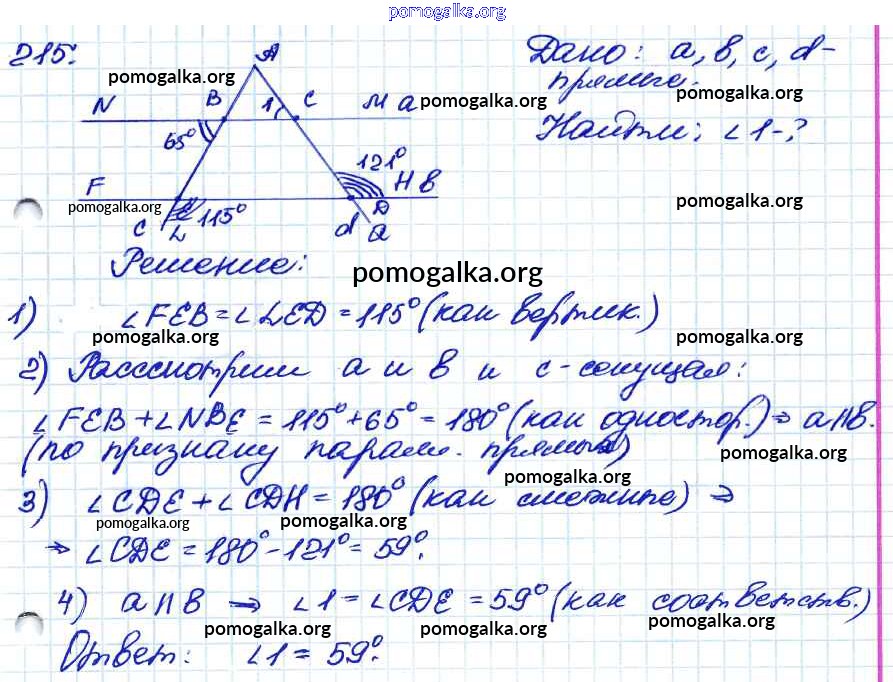 pomogalka.org
215.
A
Дано: a, b, c, d-
pomogalka.org
прямые.
pomogalka.org
N B 1 C M a
pomogalka.org
65°
Найти: ∠1-?
121°
F H b
pomogalka.org
115°
D
pomogalka.org
c L d a
Решение:
pomogalka.org
1) ∠FEB = ∠LED = 115° (как вертик.)
pomogalka.org pomogalka.org
2) Рассмотрим a и b и c - секущая:
∠FEB + ∠NBE = 115° + 65° = 180° (как одностор.) ⇒ a || b.
(по признаку паралл. прямых)
pomogalka.org
pomogalka.org
3) ∠CDE + ∠CDH = 180° (как смежные) ⇒
pomogalka.org pomogalka.org
⇒ ∠CDE = 180° - 121° = 59°.
4) a || b ⇒ ∠1 = ∠CDE = 59° (как соответств.)
pomogalka.org pomogalka.org pomogalka.org
Ответ: ∠1 = 59°.